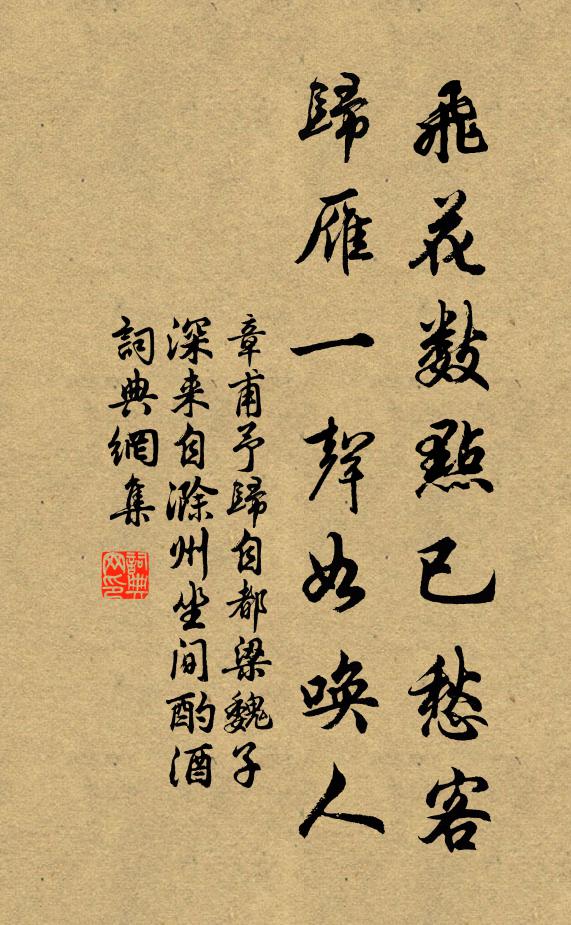 飛花數點已愁客
歸雁一聲如喚人
章甫予歸自都梁魏子
深来自滁州坐间酌酒
詞典網集
詞典网印